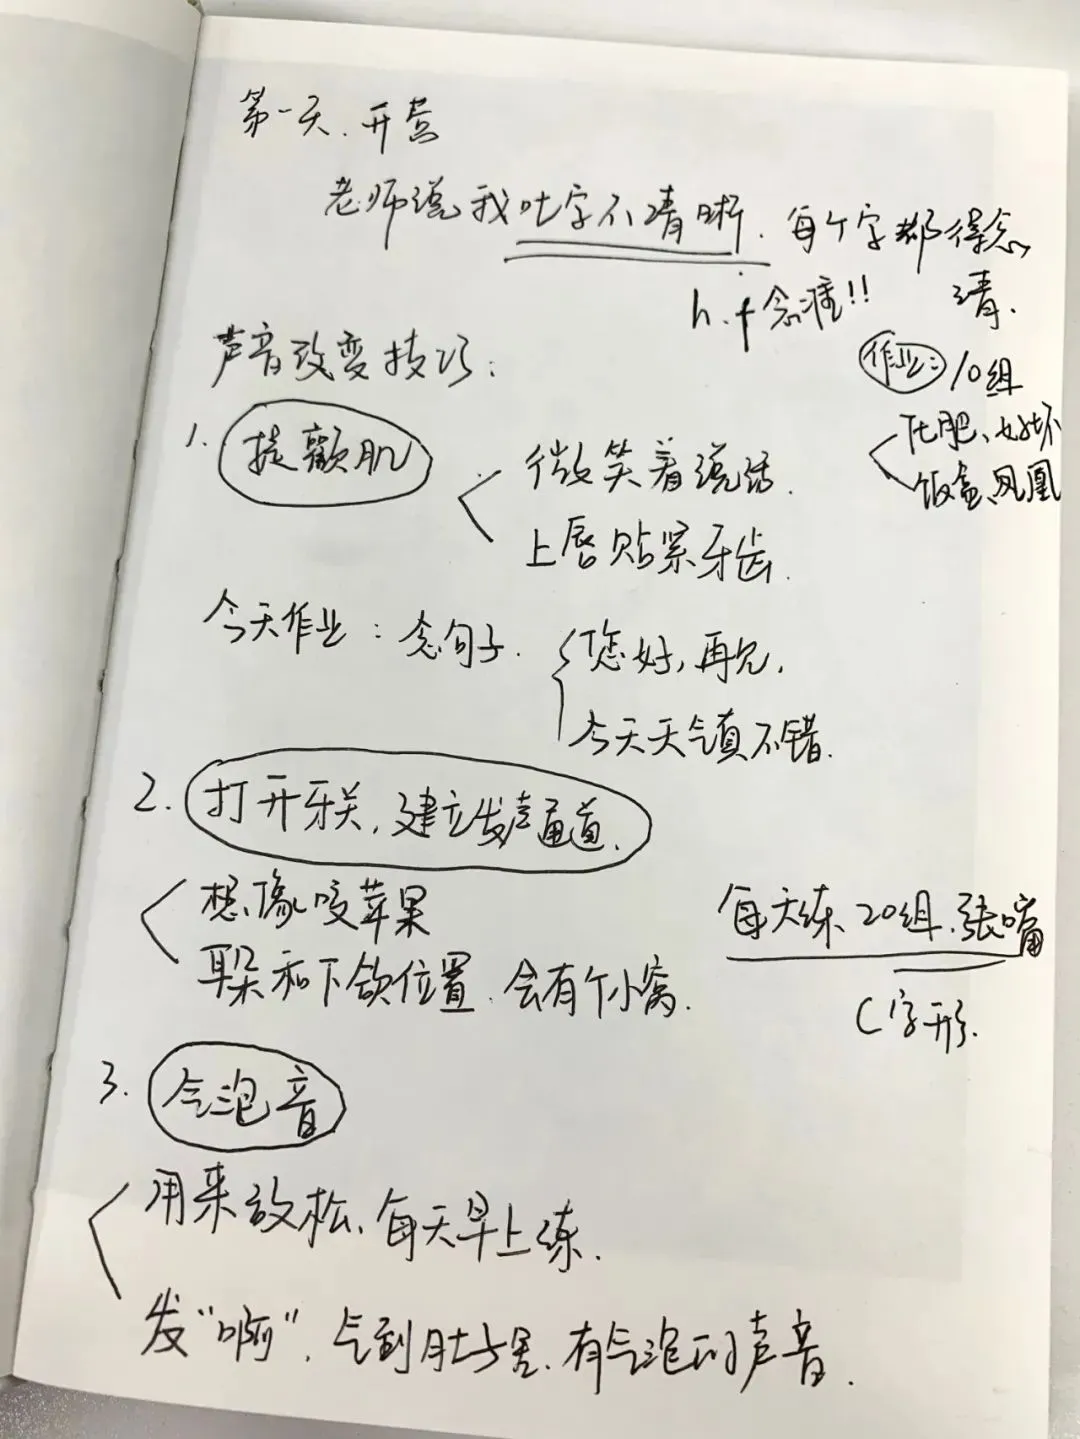 第一天、开营
老师说我吐字不清晰.每个字都得念
清.
h.f念准!!
声音改变技巧:
作业: 10组
化肥、好坏
饭盒、凤凰
1. 提颧肌
微笑着说话.
上唇贴紧牙齿.
今天作业: 念句子.
您好,再见,
今天天气真不错.
2. 打开牙关,建立发声通道.
想像咬苹果
耳朵和下颌位置.会有个小窝.
每天练20组.张嘴
C字形.
3. 气泡音
用来放松、每天早上练.
发“啊”.气到肚子里.有气泡的声音.